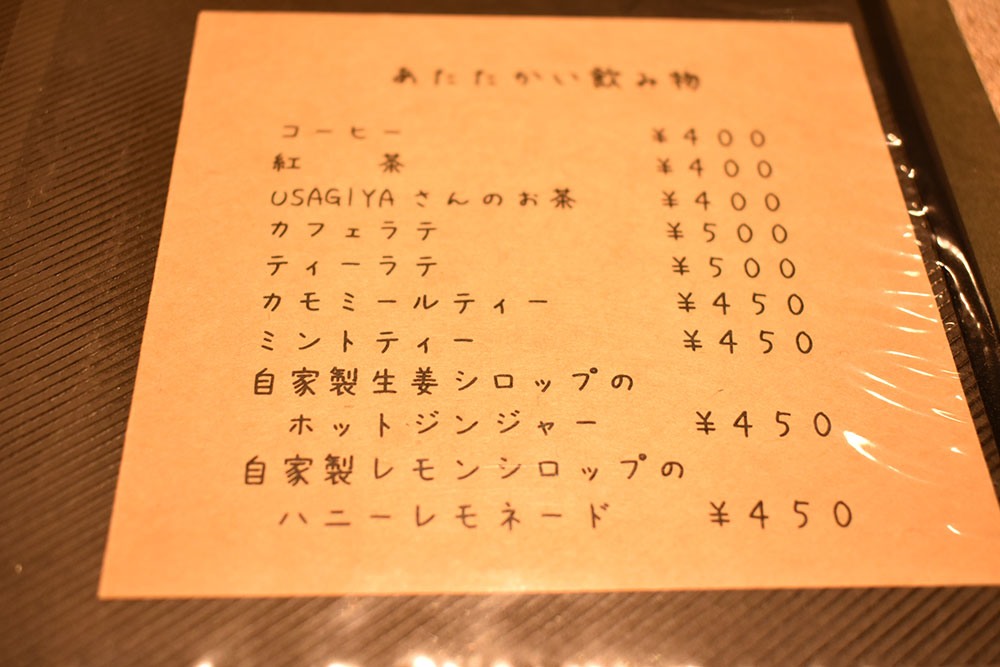 あたたかい飲み物
コーヒー ¥400
紅 茶 ¥400
USAGIYAさんのお茶 ¥400
カフェラテ ¥500
ティーラテ ¥500
カモミールティー ¥450
ミントティー ¥450
自家製生姜シロップの
ホットジンジャー ¥450
自家製レモンシロップの
ハニーレモネード ¥450